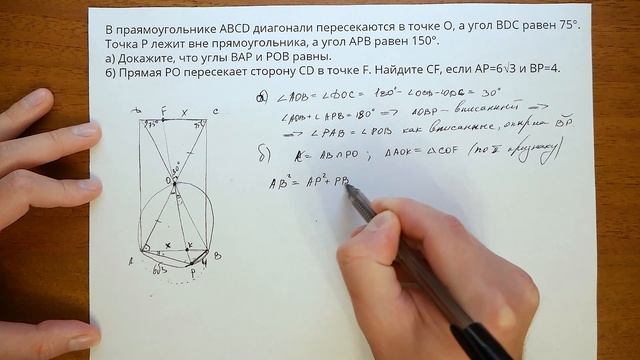 В праямоугольнике ABCD диагонали пересекаются в точке O, а угол BDC равен 75°.
Точка P лежит вне прямоугольника, а угол APB равен 150°.
а) Докажите, что углы BAP и POB равны.
б) Прямая PO пересекает сторону CD в точке F. Найдите CF, если AP=6√3 и BP=4.
а) ∠AOB = ∠DOC = 180° - ∠OCD - ∠ODC = 30°
∠AOB + ∠APB = 180° ⟹ AOBP - вписанный ⟹
⟹ ∠PAB = ∠POB как вписанные, опир на BP
б) K = AB ∩ PO ; ΔAOK = ΔCOF (по II признаку)
AB² = AP² + PB
D F X C
75° 75°
30°
O
A x K B
6√3 P 4